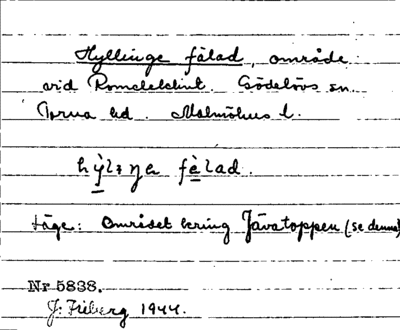 Hyllinge fälad, område
vid Romeleklint. Gödelövs sn.
Torna hd. Malmöhus l.
hỳ̱lɜŋa fè̱lad.
Läge: Området kring Jävatoppen (se denna).
Nr 5838.
J. Friberg 1944.